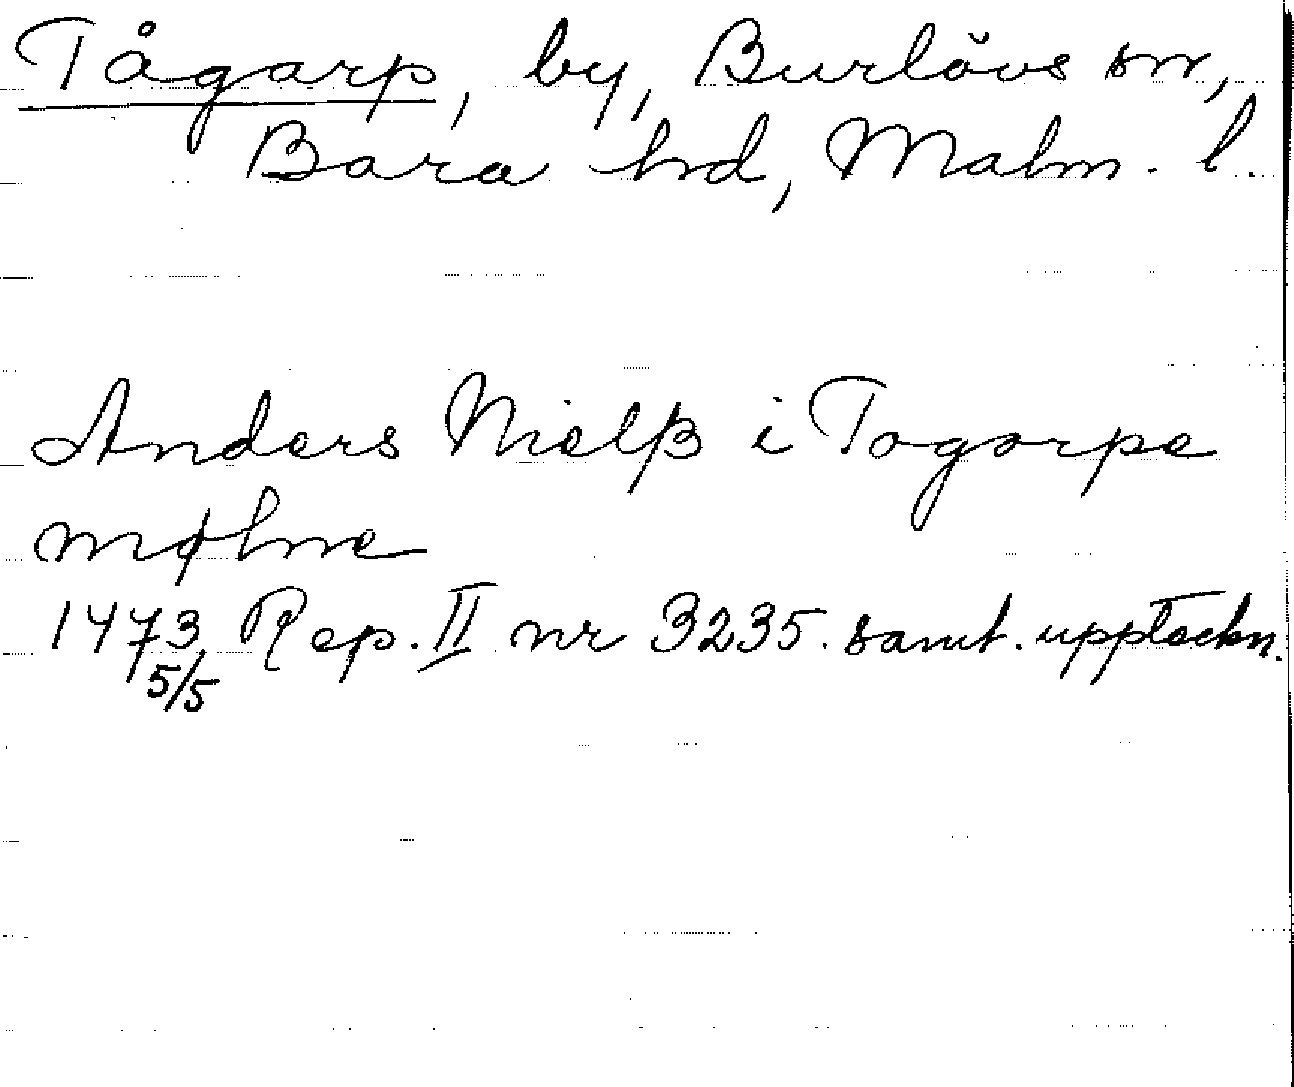 Tågarp, by, Burlövs sn,
Bara hd, Malm. l.
Anders Nielß i Togorpe
mølne
1473 5/5 Rep. II nr 3235. samt. uppteckn.